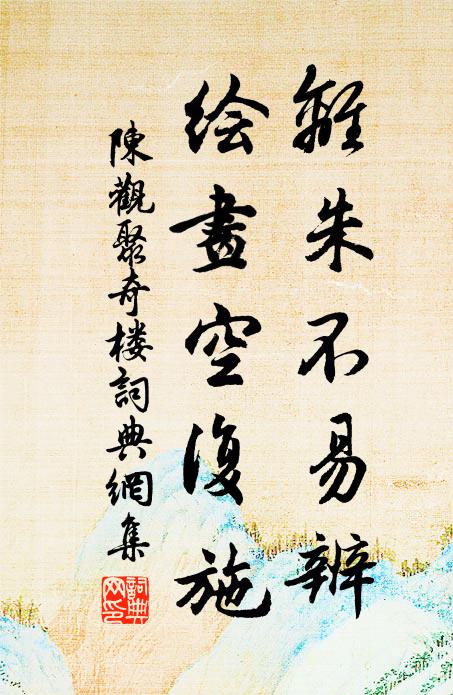 離朱不易辨
绘畫空復施
陳觀聚奇楼詞典網集
詞典网印